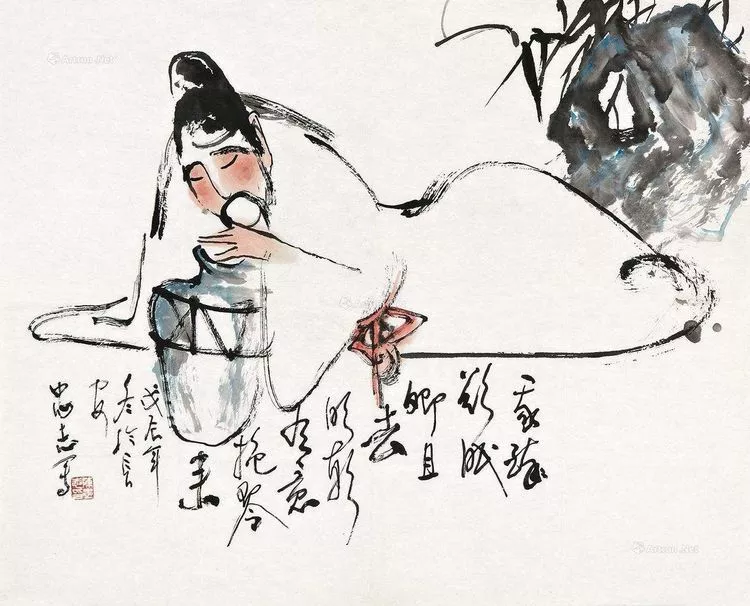 我醉
欲眠
卿且
去
明朝
有意
抱琴
来
戊辰年
冬於長
安
忠志写
Artron.Net
Artron.Net